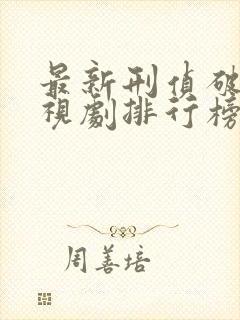 最新刑偵破
視劇排行榜
周善培